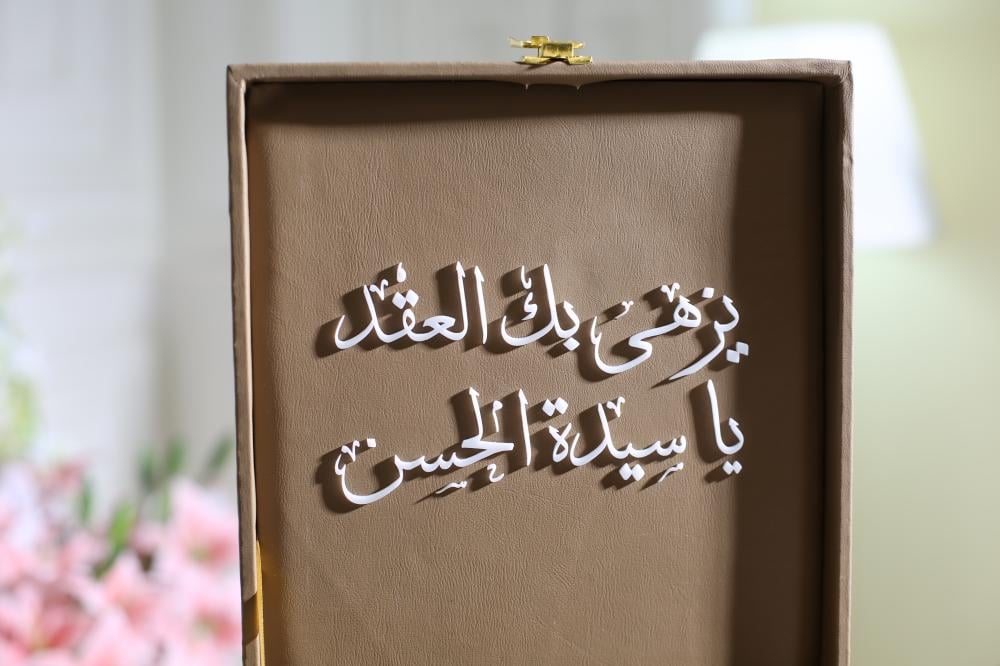 يزهى بك العقد
يا سيدة الحسن